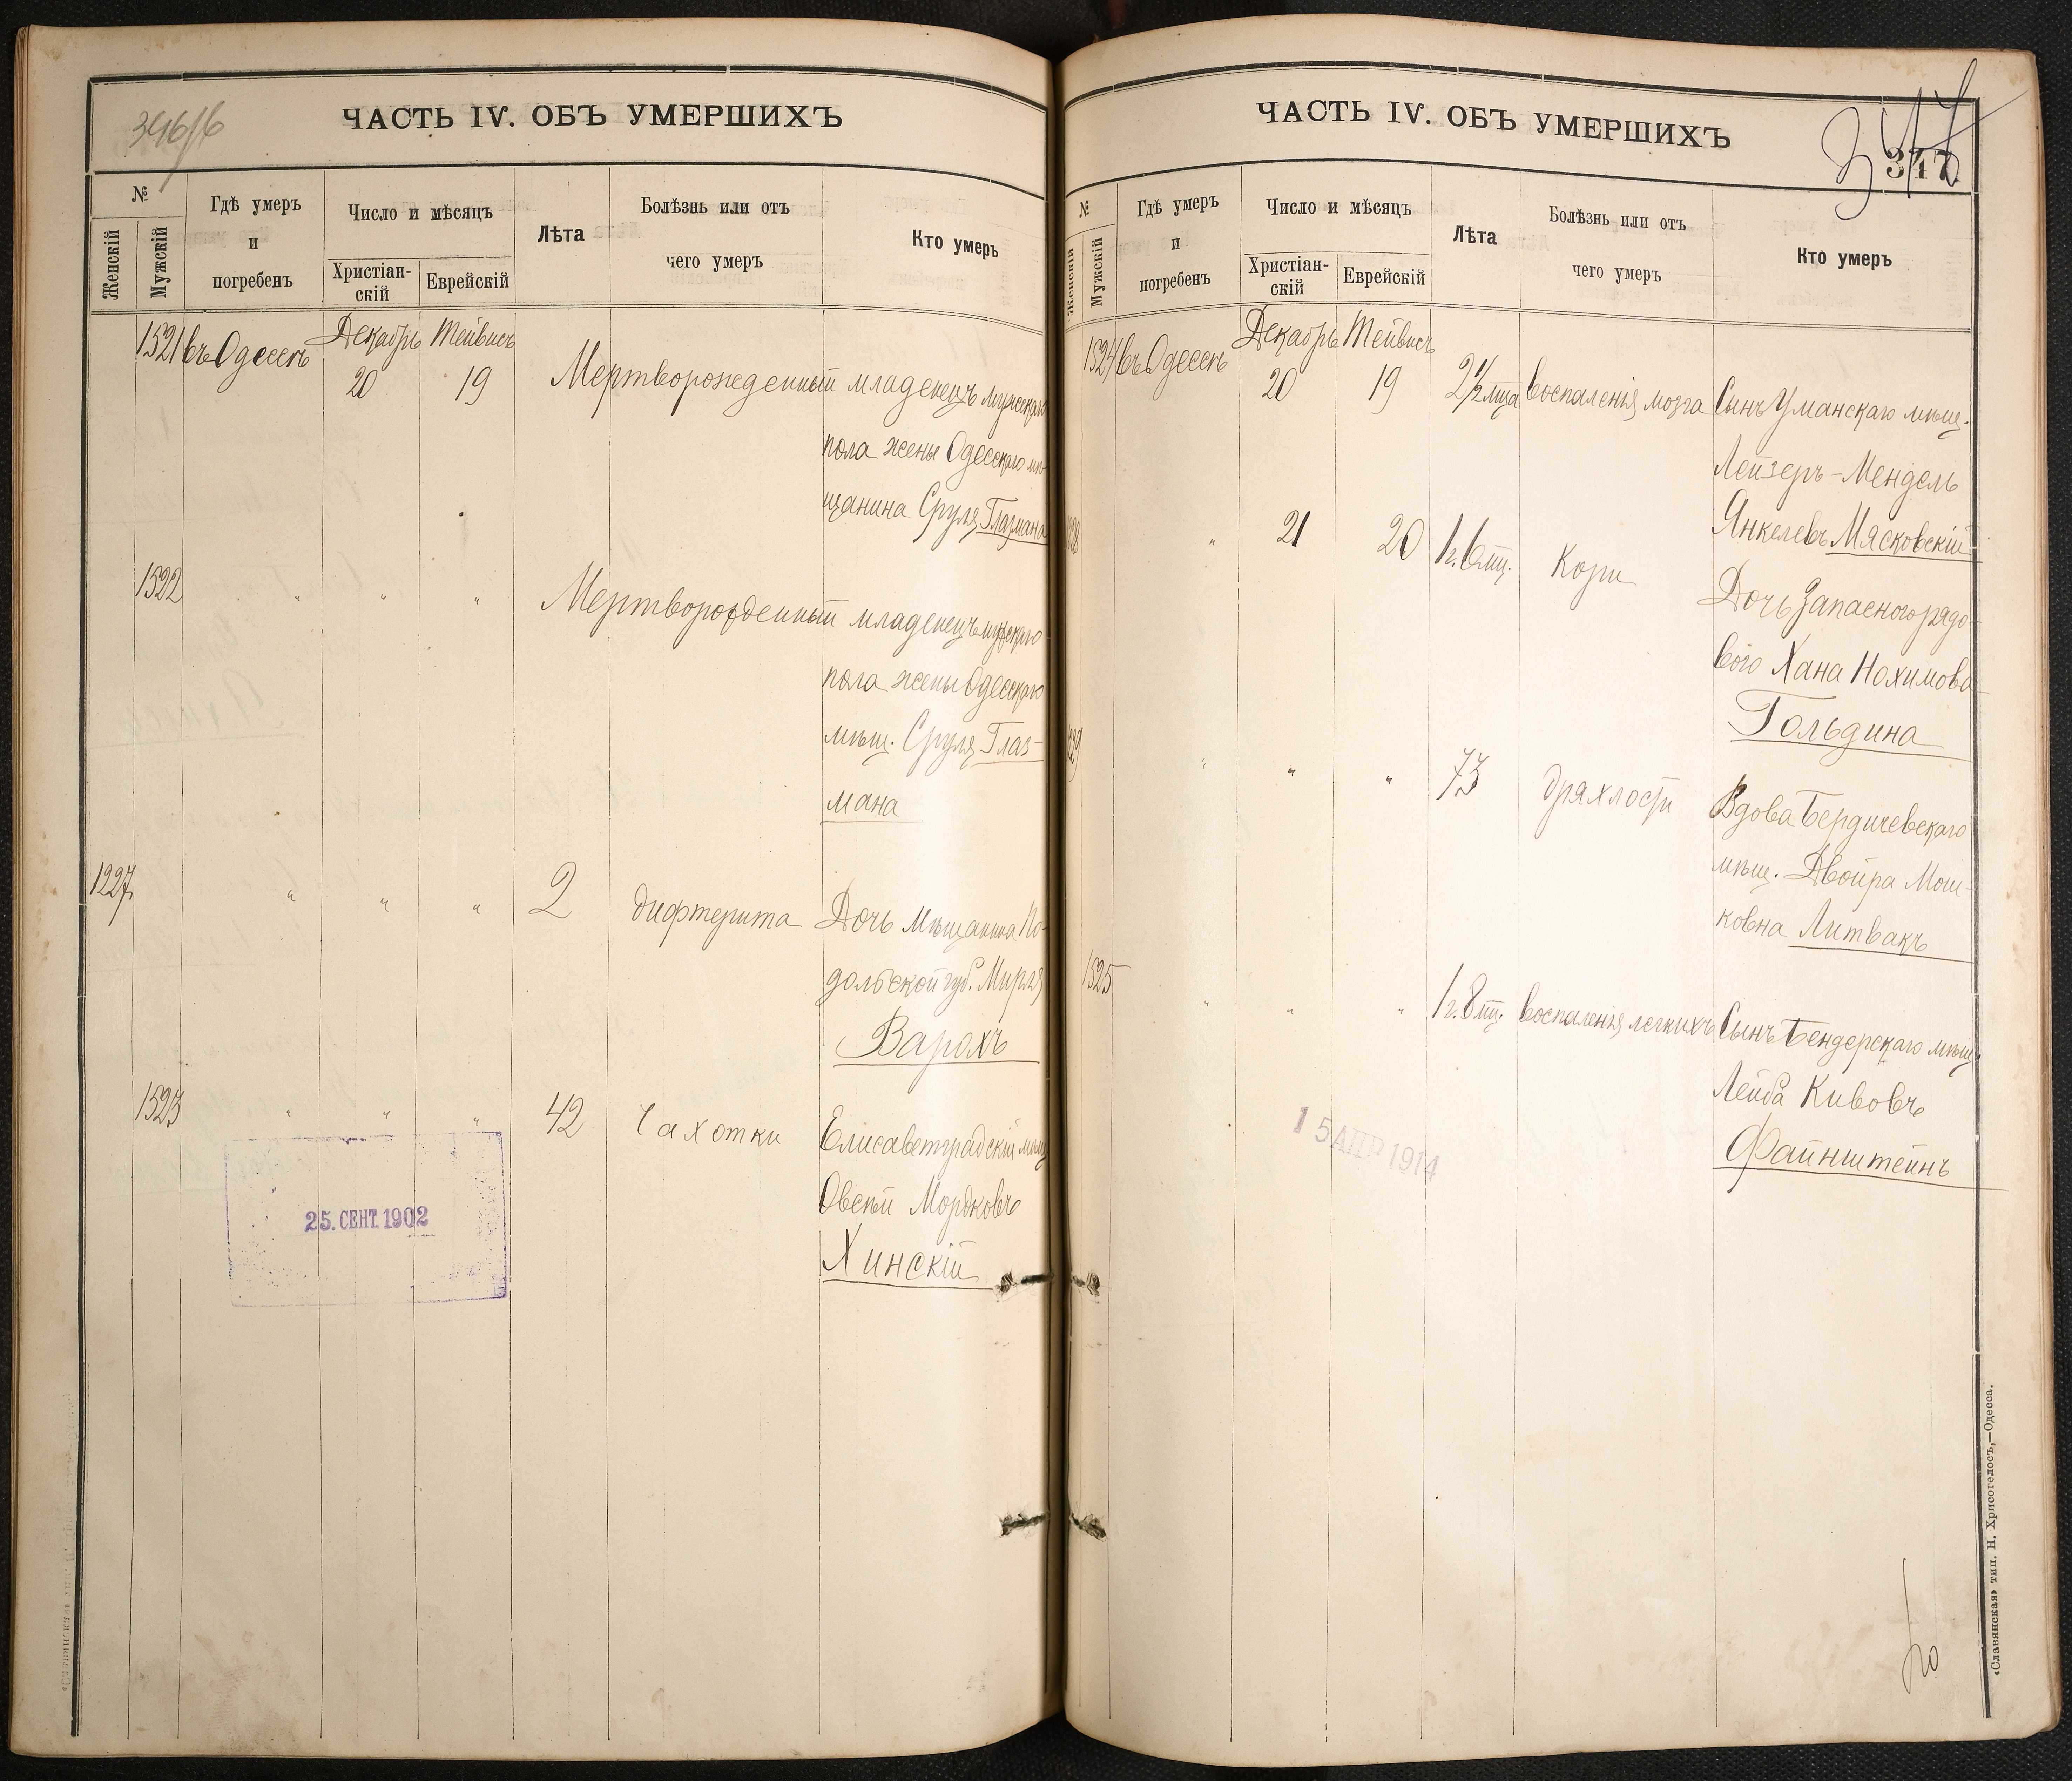 346/б
ЧАСТЬ IV. ОБЪ УМЕРШИХЪ
№
Женскій
Мужскій
Гдѣ умеръ
и
погребенъ
Число и мѣсяцъ
Христіан-
скій
Еврейскій
Лѣта
Болѣзнь или отъ
чего умеръ
Кто умеръ
1521 въ Одессѣ Декабрь Тейвисъ
20 19 Мертворожденный младенецъ мужскаго
пола жены Одесскаго мѣ-
щанина Сруля Глазмана
1522 " " " Мертворожденный младенецъ мужскаго
пола жены Одесскаго
мѣщ. Сруля Глаз-
мана
1227 " " " 2 дифтерита Дочь мѣщанина По-
дольской губ. Мирля
Варохъ
1523 " " " 42 Чахотки Елисаветградскій мѣщ
Овсѣй Мордковъ
Хинскій
25. СЕНТ. 1902
ЧАСТЬ IV. ОБЪ УМЕРШИХЪ
347
347
№
Женскій
Мужскій
Гдѣ умеръ
и
погребенъ
Число и мѣсяцъ
Христіан-
скій
Еврейскій
Лѣта
Болѣзнь или отъ
чего умеръ
Кто умеръ
1524 въ Одессѣ Декабрь Тейвисъ
20 19 2 1/2 мца воспаленія мозга Сынъ Уманскаго мѣщ.
Лейзеръ-Мендель
Янкелевъ Мясковскій
" 21 20 1 г. 6 мц. Кори Дочь Запасного рядо-
вого Хана Нохимова
Гольдина
" " " 73 дряхлости Вдова Бердичевскаго
мѣщ. Двойра Мош-
ковна Литвакъ
1525 " " " 1 г. 8 мц. воспаленія легкихъ Сынъ Бендерскаго мѣщ.
Лейба Кивовъ
Файнштейнъ
15 АПР 1914
«Славянская» тип. Н. Хрисогелосъ,—Одесса.